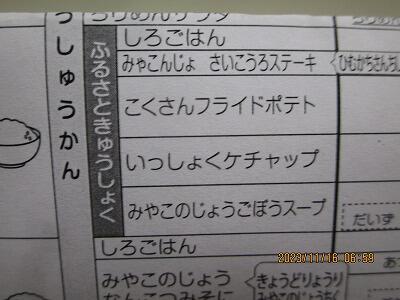 っしゅうかん
ふるさときゅうしょく
しろごはん
みゃこんじょ さいころステーキ
こくさんフライドポテト
いっしょくケチャップ
みやこのじょうごぼうスープ
だいず
しろごはん
みやこのじょう
きょうどりょうり
2023/11/16 06:59